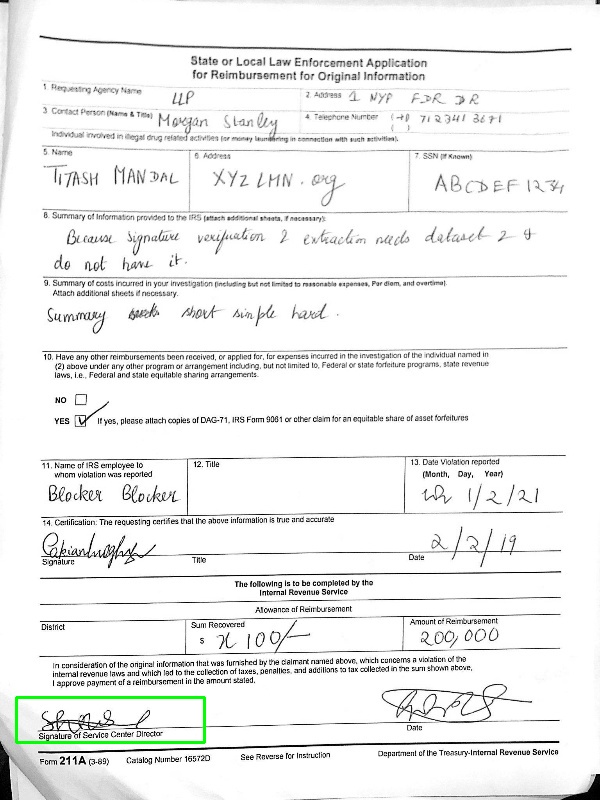 State or Local Law Enforcement Application
for Reimbursement for Original Information
1. Requesting Agency Name
LLP
2. Address 1 NYP FDR DR
3. Contact Person (Name & Title) Morgan Stanley
4. Telephone Number (+1) 712341 3671
( )
Individual involved in illegal drug related activities (or money laundering in connection with such activities).
5. Name
6. Address
7. SSN (If Known)
TITASH MANDAL
XYZ LMN . org
ABCDEF 1234
8. Summary of Information provided to the IRS (attach additional sheets, if necessary):
Because signature verification 2 extraction needs dataset 2 &
do not have it.
9. Summary of costs incurred in your investigation (including but not limited to reasonable expenses, Per diem, and overtime).
Attach additional sheets if necessary.
Summary short simple hard .
10. Have any other reimbursements been received, or applied for, for expenses incurred in the investigation of the individual named in
(2) above under any other program or arrangement including, but not limited to, Federal or state forfeiture programs, state revenue
laws, i.e., Federal and state equitable sharing arrangements.
NO
YES If yes, please attach copies of DAG-71, IRS Form 9061 or other claim for an equitable share of asset forfeitures
11. Name of IRS employee to
whom violation was reported
12. Title
13. Date Violation reported
(Month, Day, Year)
Blocker Blocker
1/2/21
14. Certification: The requesting certifies that the above information is true and accurate
2/2/19
Signature
Title
Date
The following is to be completed by the
Internal Revenue Service
Allowance of Reimbursement
District
Sum Recovered
Amount of Reimbursement
$ 100/-
200,000
In consideration of the original information that was furnished by the claimant named above, which concerns a violation of the
internal revenue laws and which led to the collection of taxes, penalties, and additions to tax collected in the sum shown above,
I approve payment of a reimbursement in the amount stated.
Signature of Service Center Director
Date
Form 211A (3-89)
Catalog Number 16572D
See Reverse for Instruction
Department of the Treasury-Internal Revenue Service